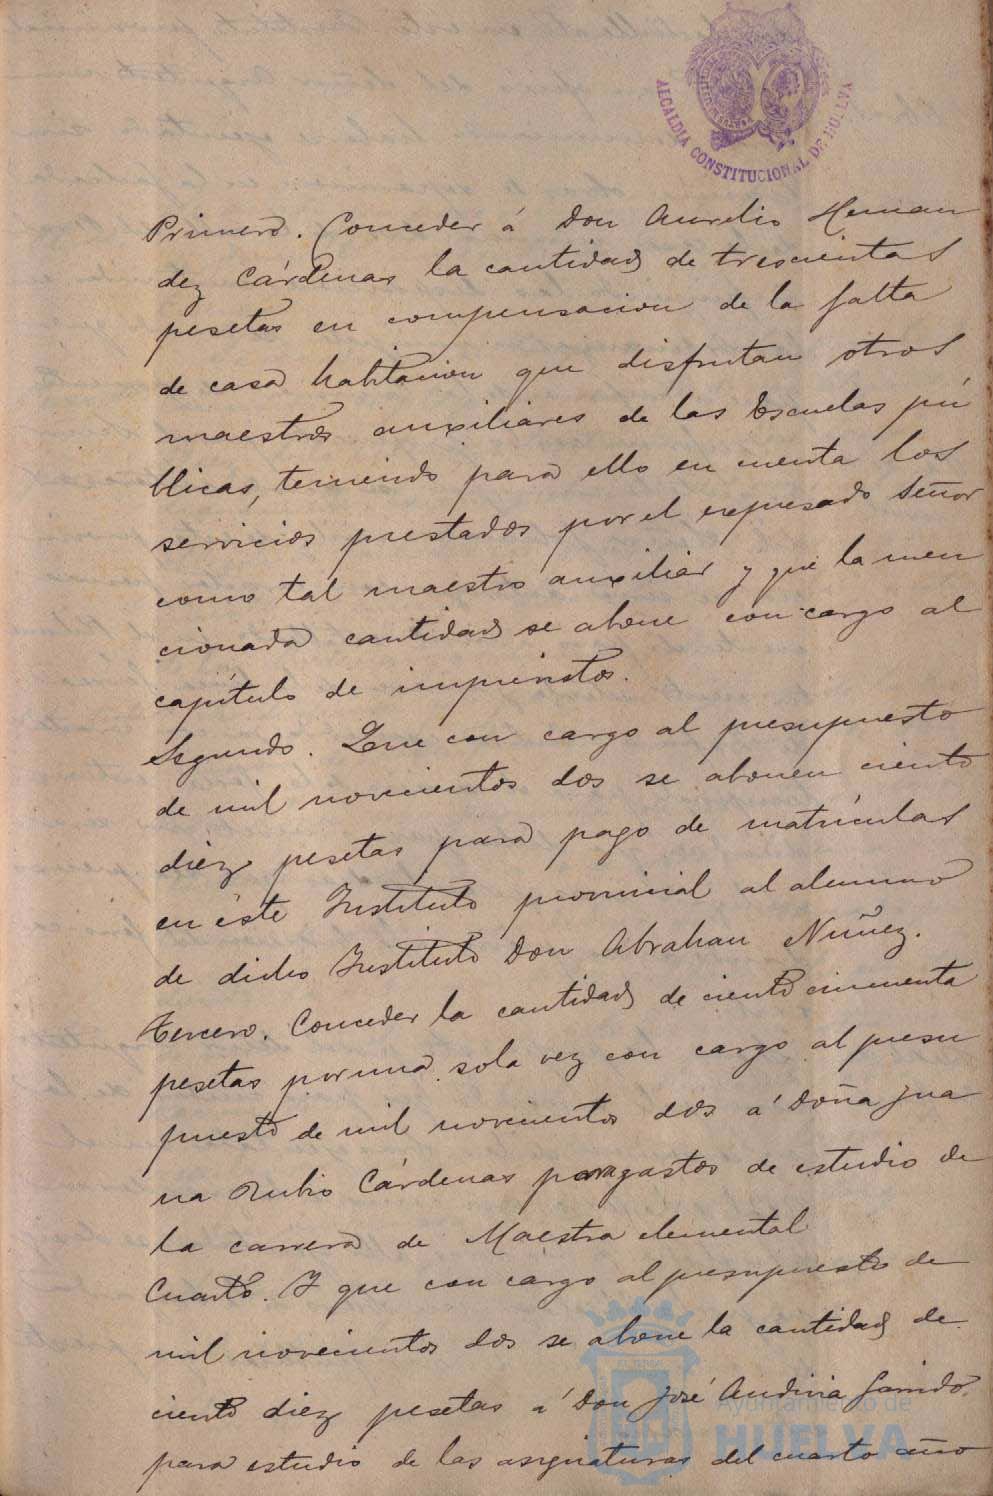 ALCALDIA CONSTITUCIONAL DE HUELVA
Primero. Conceder á Don Aurelio Hernan
dez Cárdenas la cantidad de trescientas
pesetas en compensacion de la falta
de casa habitacion que disfrutan otros
maestros auxiliares de las Escuelas pú
blicas, teniendo para ello en cuenta los
servicios prestados por el expresado Señor
como tal maestro auxiliar y que la men
cionada cantidad se abone con cargo al
capítulo de imprevistos.
Segundo. Que con cargo al presupuesto
de mil novecientos dos se abonen ciento
diez pesetas para pago de matrículas
en éste Instituto provincial al alumno
de dicho Instituto Don Abrahan Nuñez.
Tercero. Conceder la cantidad de ciento cincuenta
pesetas por una sola vez con cargo al presu
puesto de mil novecientos dos á Doña Jua
na Rubio Cárdenas para gastos de estudio de
la carrera de Maestra elemental
Cuarto. Y que con cargo al presupuesto de
mil novecientos dos se abone la cantidad de
ciento diez pesetas á Don José Andivia Garrido
para estudio de las asignaturas del cuarto año
Ayuntamiento de
HUELVA